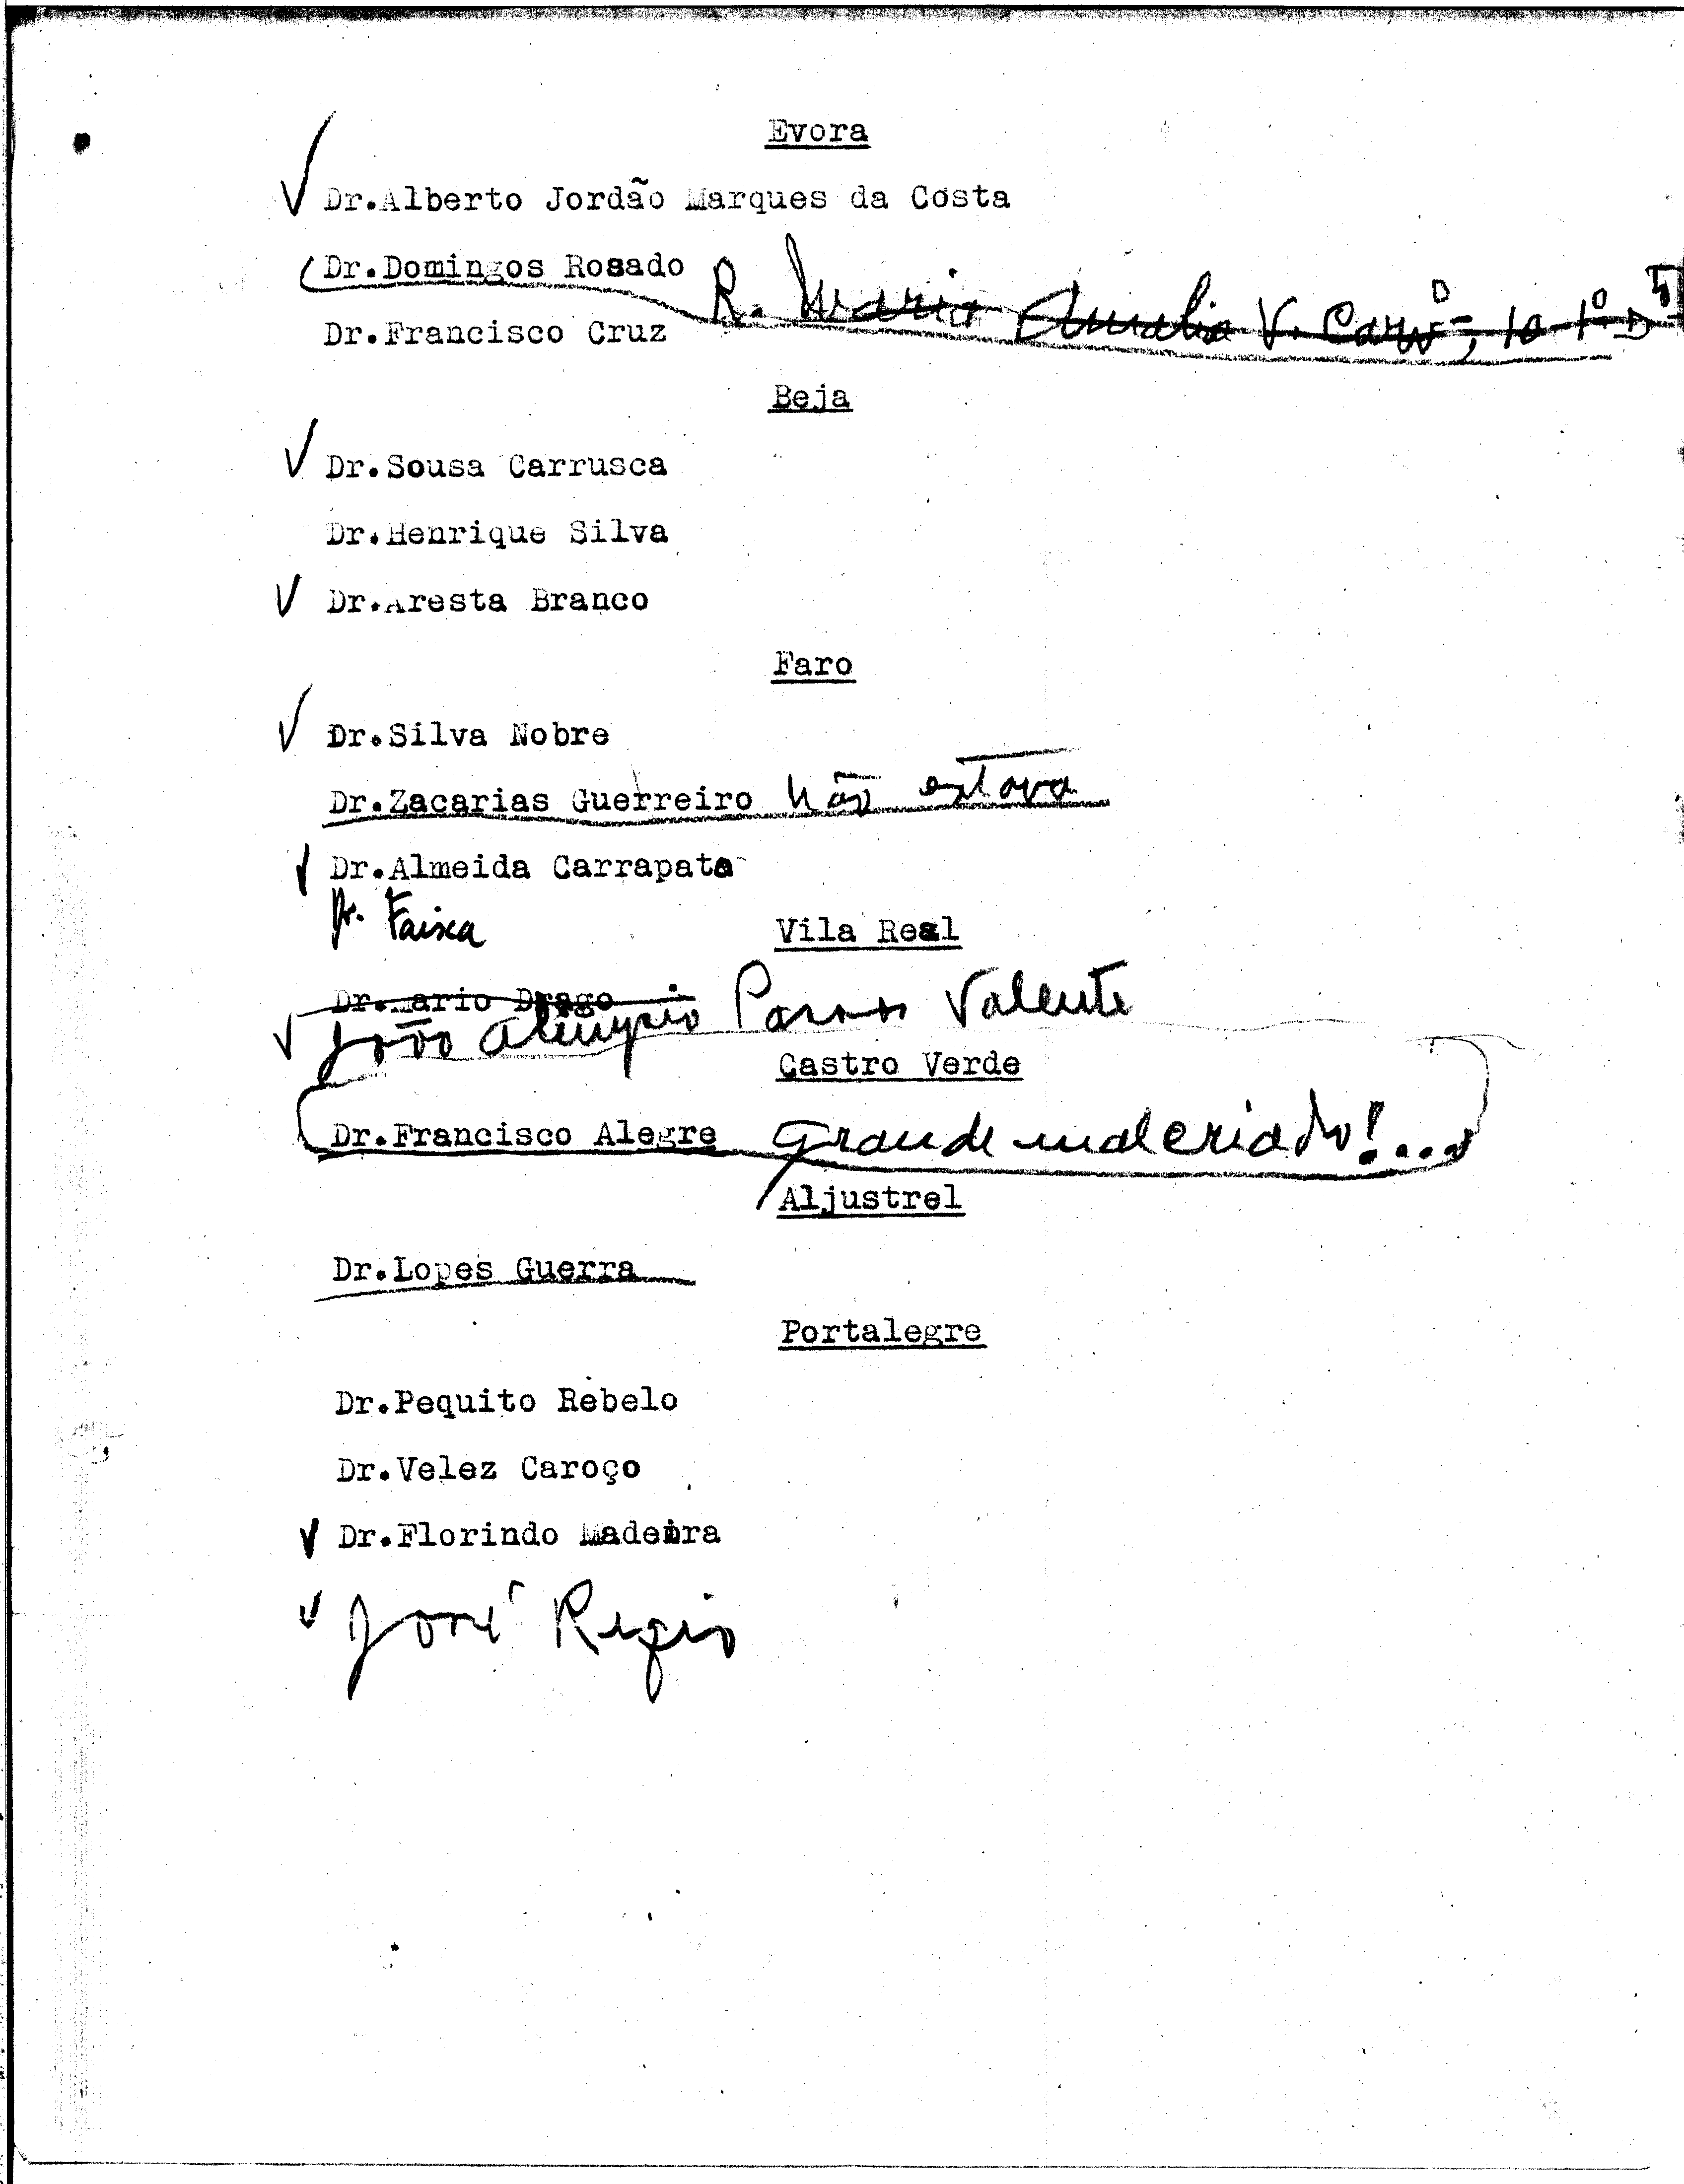 Evora
Dr.Alberto Jordão Marques da Costa
Dr.Domingos Rosado R. Maria Amalia V. Carvº, 10 1º Dto
Dr.Francisco Cruz
Beja
Dr.Sousa Carrusca
Dr.Henrique Silva
Dr.Aresta Branco
Faro
Dr.Silva Nobre
Dr.Zacarias Guerreiro Não estava
Dr.Almeida Carrapato
Dr. Faisca
Vila Real
Dr.Mario Drago
João Passos Valente
Castro Verde
Dr.Francisco Alegre Grande malcriado!...
Aljustrel
Dr.Lopes Guerra
Portalegre
Dr.Pequito Rebelo
Dr.Velez Caroço
Dr.Florindo Madeira
José Regio